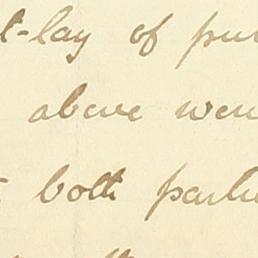 t-lay of pur
above wer
both partie